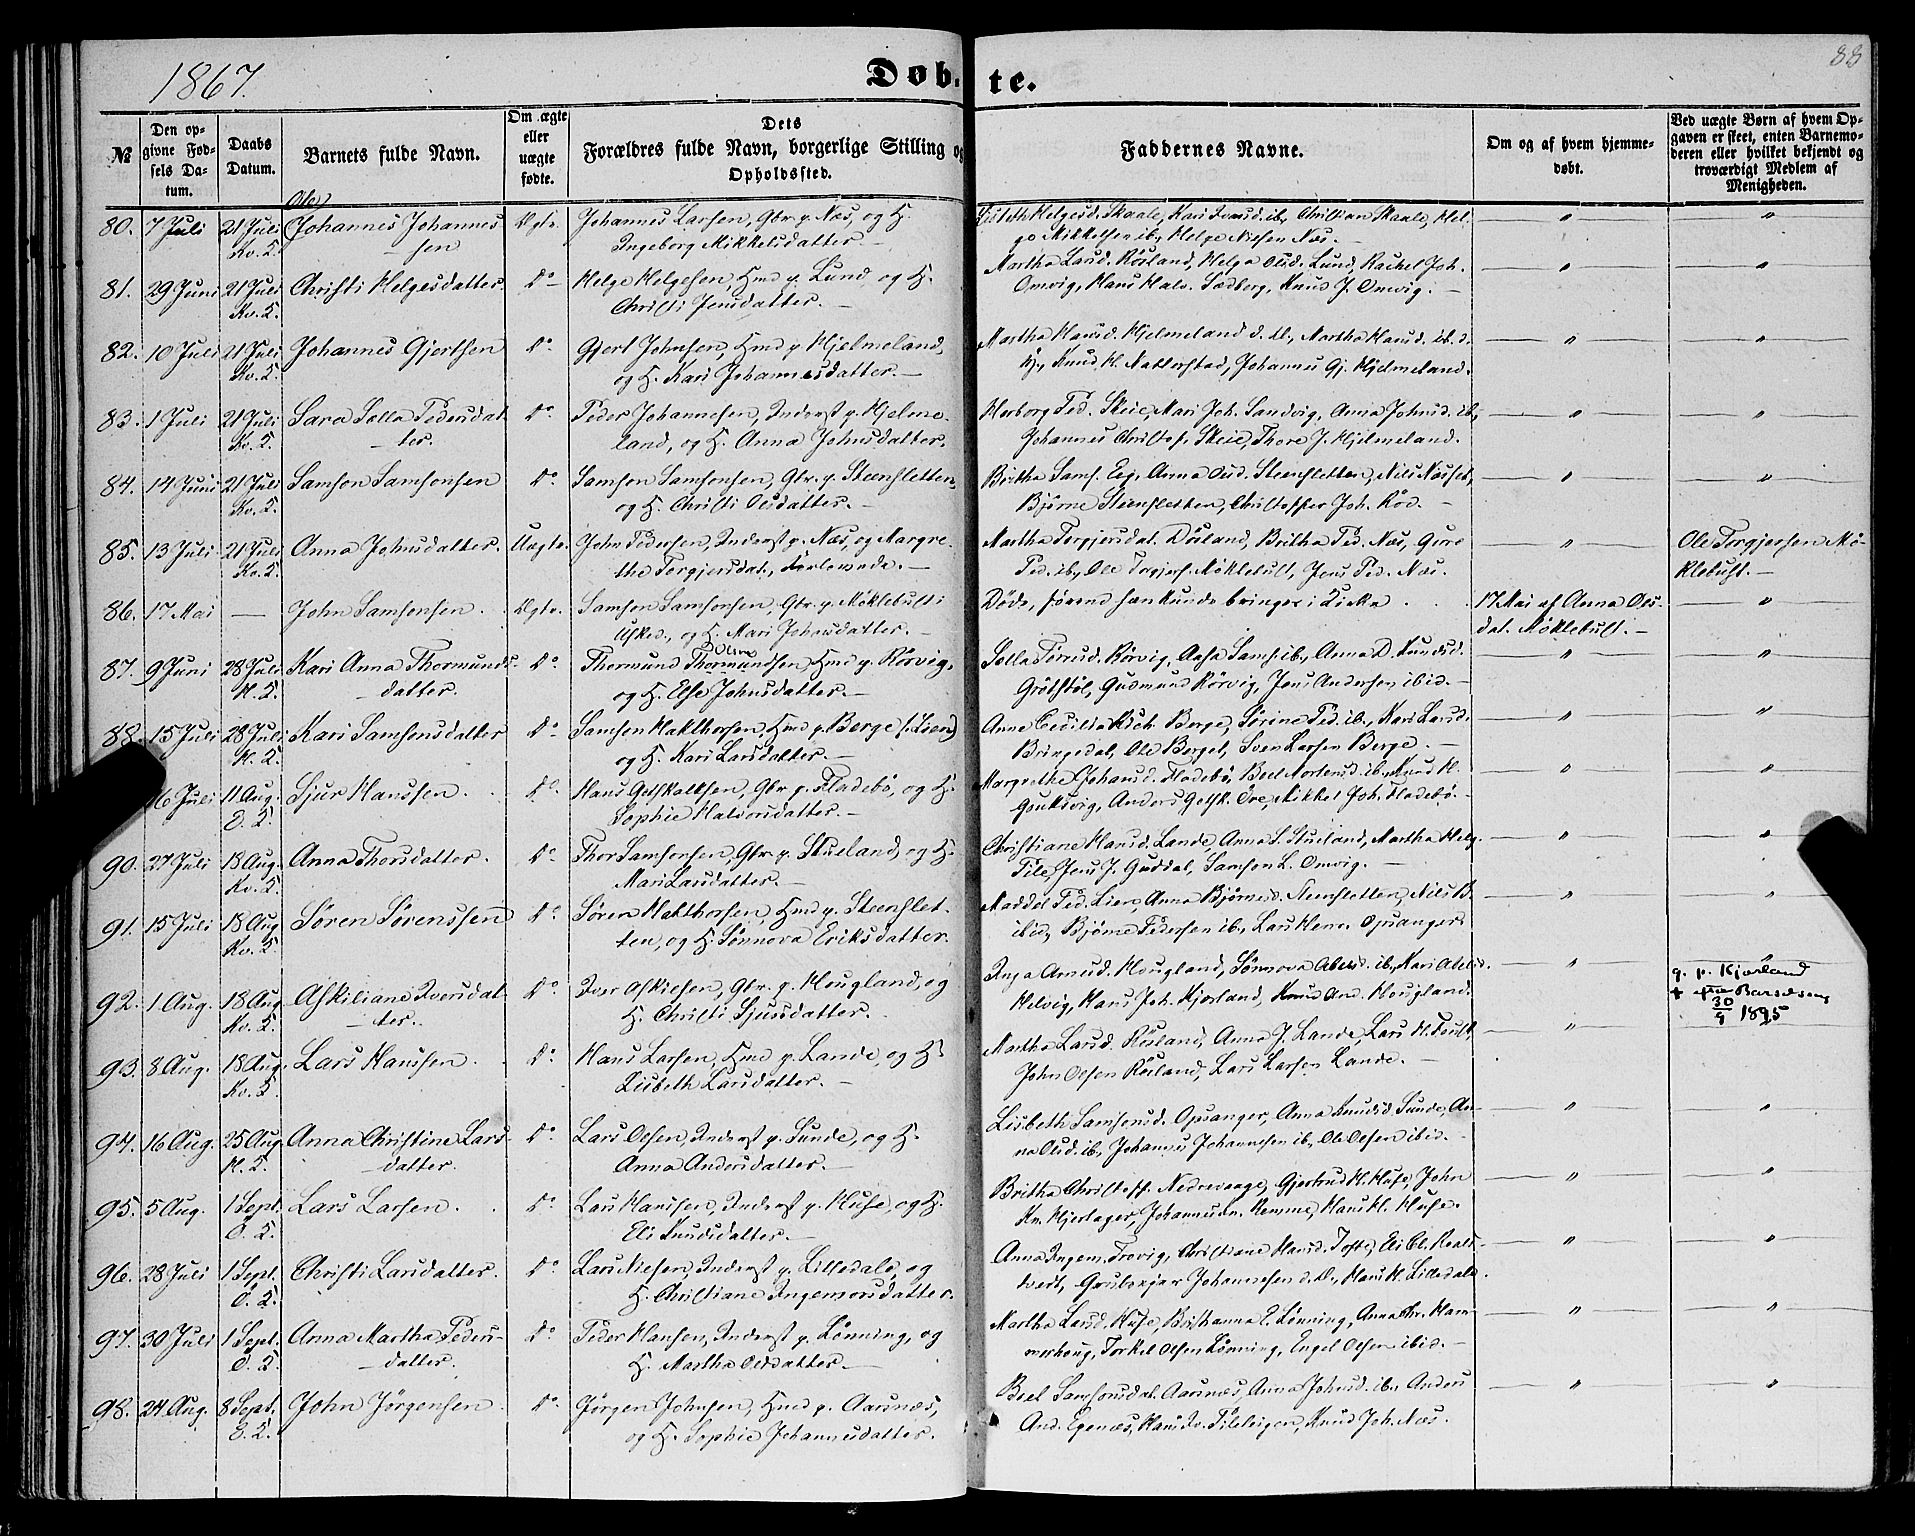 1867.
Døb-
te.
88
№
Den op-
givne Fød-
sels Da-
tum.
Daabs
Datum.
Barnets fulde Navn.
Om ægte
eller
uægte
fødte.
Dets
Forældres fulde Navn, borgerlige Stilling og
Opholdssted.
Faddernes Navne.
Om og af hvem hjemme-
døbt.
Ved uægte Børn af hvem Op-
gaven er skeet, enten Barnemo-
deren eller hvilket bekjendt og
troværdigt Medlem af
Menigheden.
Ole
80. 7 Juli 21 Juli Johannes Johannes- Ægte. Johannes Larsen, Gbr. p. Næs, og H.
Kv. K. sen Ingeborg Mikkelsdatter.
Helgesd. Skaale, Kari Iversd. ib., Christian Skaale, Hel-
ge Mikkelsen ib., Helge Nilsen Næs. — " "
81. 29 Juni 21 Juli Christi Helgesdatter. Do Helge Helgesen, Hmd p. Lund og H.
Kv. K. Christi Jensdatter.
Martha Larsd. Røsland, Helga Olsd. Lund, Rachel Joh.
Omvig, Hans Halv. Sædberg, Knus J. Omvig. — " "
82. 10 Juli 21 Juli Johannes Gjertsen Do Gjert Johnsen, Hmd p. Hjelmeland,
Kv. K. og H. Kari Johannesdatter.
Martha Hansd. Hjelmeland d. æl., Martha Hansd. ib. d.
y., Knud H. Natterstad, Johannes Gj. Hjelmeland. " "
83. 1 Juli 21 Juli Sara Solla Pedersdat- Do Peder Johannesen, Inderst p. Hjelme-
Kv. K. ter. land, og H. Anna Johnsdatter.
Herborg Ped. Skeie, Mari Joh. Sandvig, Anna Johnsd. ib.,
Johannes Christof. Skeie, Thore J. Hjelmeland. " "
84. 14 Juni 21 Juli Samson Samsonsen Do Samson Samsonsen, Gbr. p. Steensletten,
Kv. K. og H. Christi Olsdatter.
Britha Sams. Eeg, Anna Olsd. Steensletten, Nils Næsset,
Bjørne Steensletten, Christopher Joh. Rød. " "
85. 13 Juli 21 Juli Anna Johnsdatter. Uægte. John Pedersen, Inderst p. Næs, og Margre-
Kv. K. the Torgjersdat., Forlovede.
Martha Torgjersdat. Døsland, Britha Ped. Næs, Guro
Ped. ib., Ole Torgjers. Møklebust, Jens Ped. Næs. " Ole Torgjersen Mø-
klebust.
86. 17 Mai — John Samsonsen. Ægte. Samson Samsonsen, Gbr. p. Møklebust i
Usked., og H. Mari Johnsdatter.
Døde, førend han kunde bringes i Kirke. 17 Mai af Anna Ols-
dat. Møklebust. "
87. 9 Juni 28 Juli Kari Anna Thormunds- Do Thormund Thormundsen, Hmd p. Rørvig,
H. K. datter. og H. Else Johnsdatter.
Rørvig, Aasa Sams. ib., Anna D. Lundsd.
Grøtstøl, Gudmund Rørvig, Jens Andersen ibid. " "
88. 15 Juli 28 Juli Kari Samsonsdatter Do Samson Halthorsen, Hmd p. Berge (: Lien)
H. K. og H. Kari Larsdatter.
Anne Cecilia Rich. Berge, Sørine Ped. ib., Kari Larsd.
Bringedal, Ole Berget, Sven Larsen Berge. " "
16 Juli 11 Aug. Sjur Hanssen. Do Hans Getskaltsen, Gbr. p. Fladebø, og H.
Ø. K. Sophie Halvorsdatter.
Margrethe Johansd. Fladebø, Beel Mortensd. ib., Knud H.
Anders Getsk. Øre, Mikkel Joh. Fladebø. " "
90. 27 Juli 18 Aug. Anna Thorsdatter. Do Thor Samsonsen, Gbr. p. Stueland og H.
Kv. K. Mari Larsdatter.
Christiane Hansd. Lande, Anna S. Stueland, Martha Helg.
Tile, Jens J. Guddal, Samson L. Omvig. " "
91. 15 Juli 18 Aug Søren Sørenssen Do Søren Halthorsen, Hmd p. Steenslet-
Kv. K. ten, og H. Sønnova Eriksdatter.
Maddel Ped. Lien, Anna Bjørnesd. Steensletten, Nils B.
ibid., Bjørne Pedersen ib., Lars Opsanger. " "
92. 1 Aug. 18 Aug Askiliane Iversdat- Do Iver Askilsen, Gbr. p. Hougland, og
Kv. K. ter. H. Christi Sjursdatter.
Inga Amund. Hougland, Sønnova Abelsd. ib., Kari Abelsd.
Helvig, Hans Joh. Kjerland, Knud And. Hougland. " g. p. Kjerland
+ efter Barselseng
30/9 1895
93. 8 Aug. 18 Aug. Lars Hanssen. Do Hans Larsen, Hmd p. Lande, og H.
Kv. K. Lisbeth Larsdatter.
Martha Larsd. Røsland, Anna J. Lande, Lars H. Tvedt,
John Olsen Røsland, Lars Larsen Lande. "
94. 16 Aug. 25 Aug Anna Christine Lars- Do Lars Olsen, Inderst p. Sunde, og H.
H. K. datter. Anna Andersdatter.
Lisbeth Samsonsd. Opsanger, Anna Knudsd. Sunde, An-
na Olsd. ib., Johannes Johannesen ib., Ole Olsen ibid. " "
95. 5 Aug. 1 Sept. Lars Larsen. Do Lars Hanssen, Inderst p. Huse, og H.
Ø. K. Eli Knudsdatter.
Britha Christoff. Nedrevaage, Gjertrud H. Huse, John
Kn. Hjertager, Johannes Kn. Remme, Hans H. Huse. " "
96. 28 Juli 1 Sept. Christi Larsdatter. Do Lars Nilsen, Inderst p. Lilledale, og
Ø. K. H. Christiane Ingemorsdatter.
Anna Ingem. Trovig, Christiane Hansd. Tofte,
Johannesen Hans H. Lilledale. " "
97. 30 Juli 1 Sept. Anna Martha Peders- Do Peder Hansen, Inderst p. Lønning, og
Ø. K. datter. H. Martha Olsdatter.
Martha Larsd. Huse, Brithanna E. Lønning, Anna Chr. Ham-
merhoug, Torkel Olsen Lønning, Engel Olsen ibid. " "
98. 24 Aug. 8 Sept. John Jørgensen. Do Jørgen Johnsen, Hmd p. Aarsnæs,
Ø. K. og H. Sophie Johannesdatter.
Beel Samsonsdat. Aarsnæs, Anna Johnsd. ib., Anders
And. Egenæs, Hans Iv. Teleteigen, Knud Joh. Næs. " "